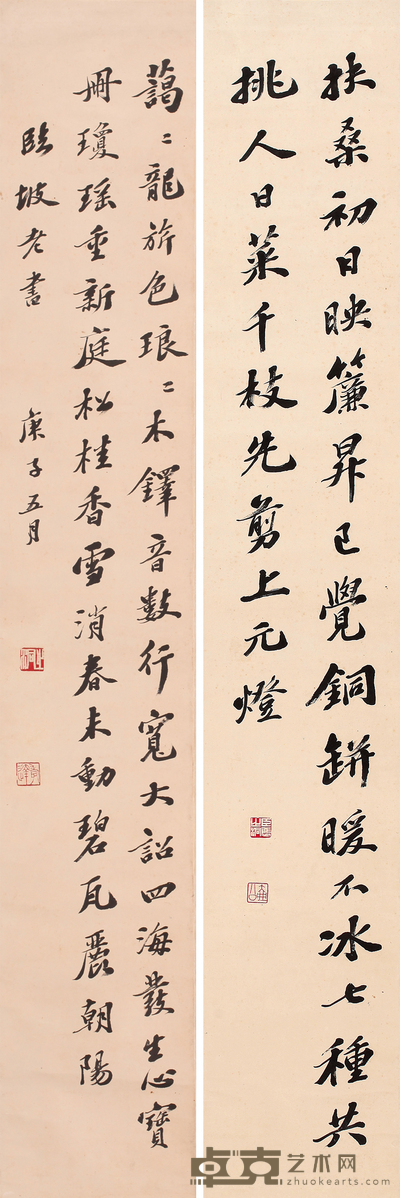 扶桑初日映簾昇已覺銅缾暖不冰七種共
挑人日菜千枝先剪上元燈
藹〻龍旂色琅〻木鐸音數行寬大詔四海發生心寶
冊瓊瑤重新庭松桂香雪消春未動碧瓦麗朝陽
臨坡老書
庚子五月
卓克艺术网
www.zhuokearts.com